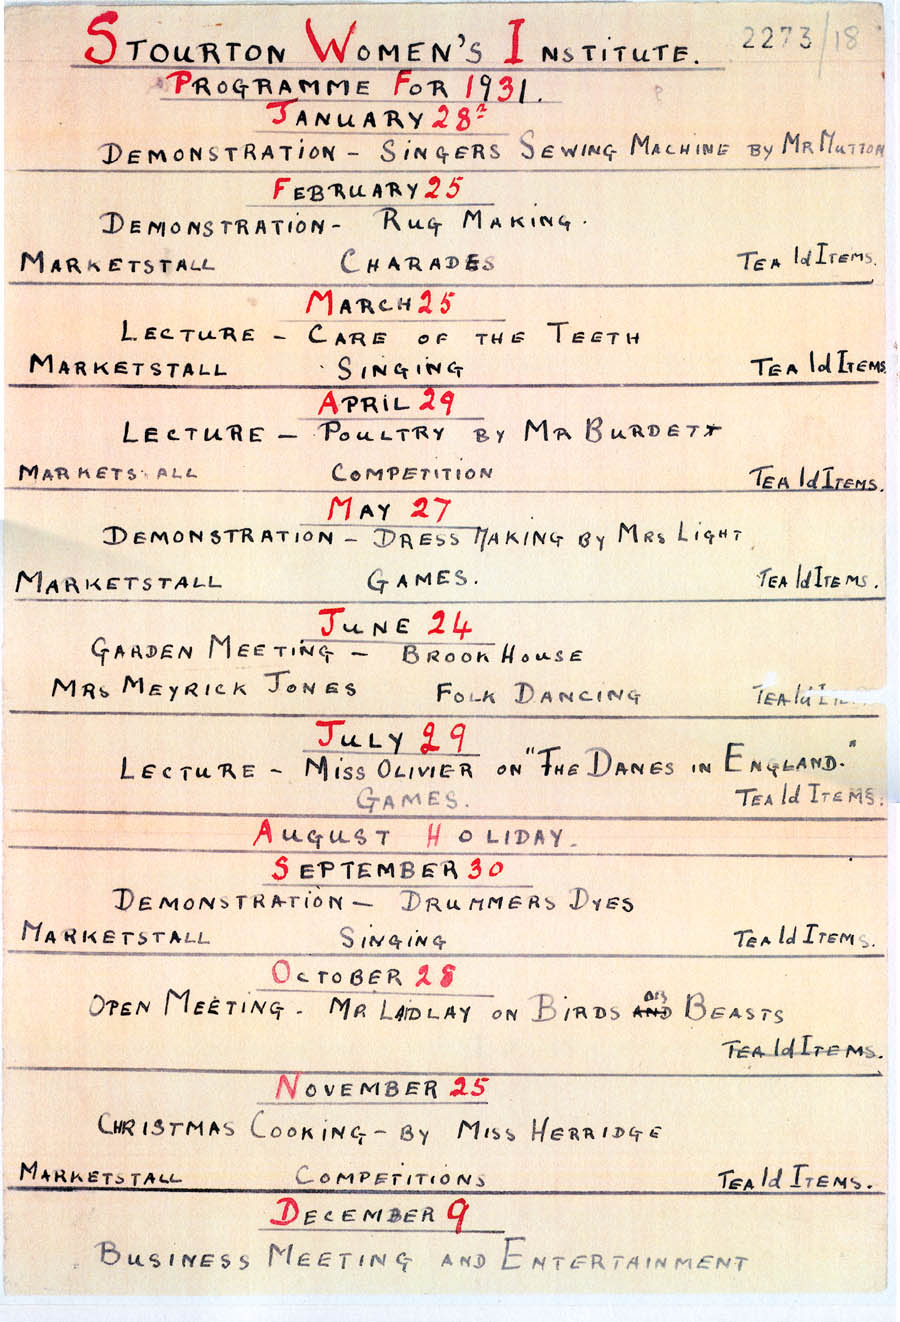 STOURTON WOMEN'S INSTITUTE. 2273/18
PROGRAMME FOR 1931.
JANUARY 28
DEMONSTRATION - SINGERS SEWING MACHINE BY MR MUTTON
FEBRUARY 25
DEMONSTRATION - RUG MAKING.
MARKETSTALL CHARADES TEA 1d ITEMS.
MARCH 25
LECTURE - CARE OF THE TEETH
MARKETSTALL SINGING TEA 1d ITEMS
APRIL 29
LECTURE - POULTRY BY MR BURDETT
MARKETS ALL COMPETITION TEA 1d ITEMS.
MAY 27
DEMONSTRATION - DRESS MAKING BY MRS LIGHT
MARKETSTALL GAMES. TEA 1d ITEMS.
JUNE 24
GARDEN MEETING - BROOK HOUSE
MRS MEYRICK JONES FOLK DANCING TEA 1d
JULY 29
LECTURE - MISS OLIVIER ON "THE DANES IN ENGLAND."
GAMES. TEA 1d ITEMS.
AUGUST HOLIDAY.
SEPTEMBER 30
DEMONSTRATION - DRUMMERS DYES
MARKETSTALL SINGING TEA 1d ITEMS.
OCTOBER 28
OPEN MEETING - MR LADLAY ON BIRDS AND BEASTS
TEA 1d ITEMS.
NOVEMBER 25
CHRISTMAS COOKING - BY MISS HERRIDGE
MARKETSTALL COMPETITIONS TEA 1d ITEMS.
DECEMBER 9
BUSINESS MEETING AND ENTERTAINMENT